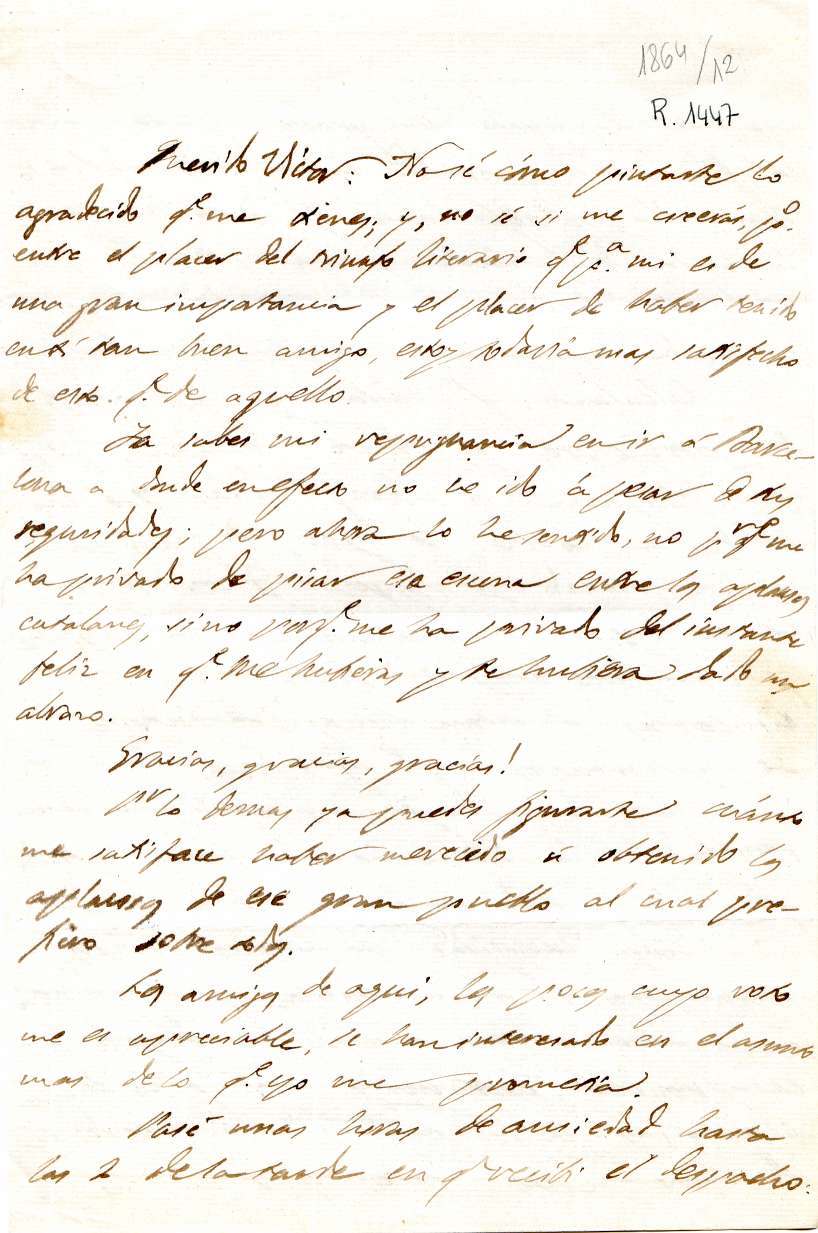 1864/12
R. 1447
Querido Víctor: No sé cómo pintarte lo
agradecido q.e me tienes; y, no sé si me creerás, p.o
entre el placer del triunfo literario q.e p.a mi es de
una gran importancia y el placer de haber tenido
en tí tan buen amigo, estoy todavía mas satisfecho
de esto q.e de aquello.
Ya sabes mi repugnancia en ir á Barce-
lona a donde en efecto no he ido á pesar de tus
seguridades; pero ahora lo he sentido, no p.r q.e me
ha privado de pisar esa escena entre los aplausos
catalanes, sino porq.e me ha privado del instante
feliz en q.e me hubieras y te hubiera dado un
abrazo.
Gracias, gracias, gracias!
P.r lo demas ya puedes figurarte cuánto
me satisface haber merecido ú obtenido los
aplausos de ese gran pueblo al cual pre-
fiero sobre todos.
Los amigos de aqui, los pocos cuyo voto
me es apreciable, se han interesado en el asunto
mas de lo q.e yo me prometía.
Pasé unas horas de ansiedad hasta
las 2 de la tarde en q.e recibi el despacho: